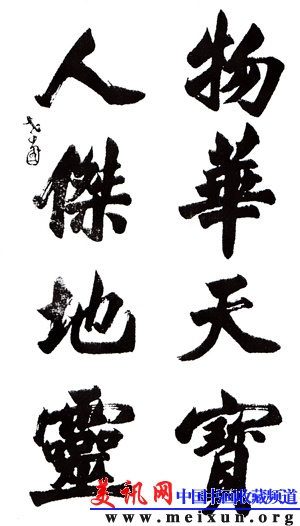 物華天寶
人傑地靈
美讯网
中国书画收藏频道
www.meixun.org